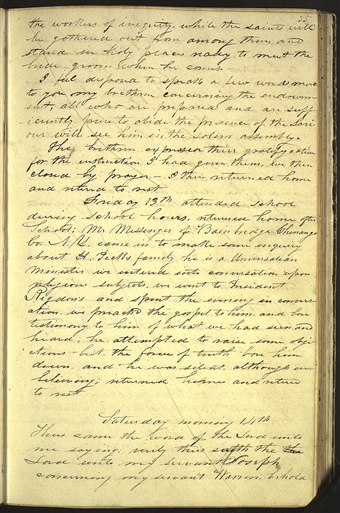 the workers of iniquity, while the saints will
be gathered out from among them and
stand in holy places ready to meet the
bride groom when he comes.
I feel disposed to speak a few words more
to you my brethren concerning the endowm-
ent, all who are prepared and are suff-
iciently pure to abide the presence of the Savi
our will see him in the solem assembly.
The brethren expressed their gratifycation
for the instruction I had given them, we then
closed by prayer — I then returned home
and retired to rest
Friday 13th attended school
during school hours, returned home after
School; Mr Messenger of Bainbridge Chenango
Co N.Y. came in to make some enquiry
about H. Peck's family he is a Universalian
Minister we entered into conversation upon
religious subjects, we went to President
Rigdon's and spent the evening in conver
ation, we preachd the gospel to him, and bore
testimony to him of what we had seen and
heard, he attempted to raise some obje
ctions but the force of truth bore him
down, and he was silent, although un
believing; returned home and retired
to rest
Saturday morning 14th
Thus came the word of the Lord unto
me saying: verily thus saith the
Lord unto my servant Joseph
concerning my servant Warren behold